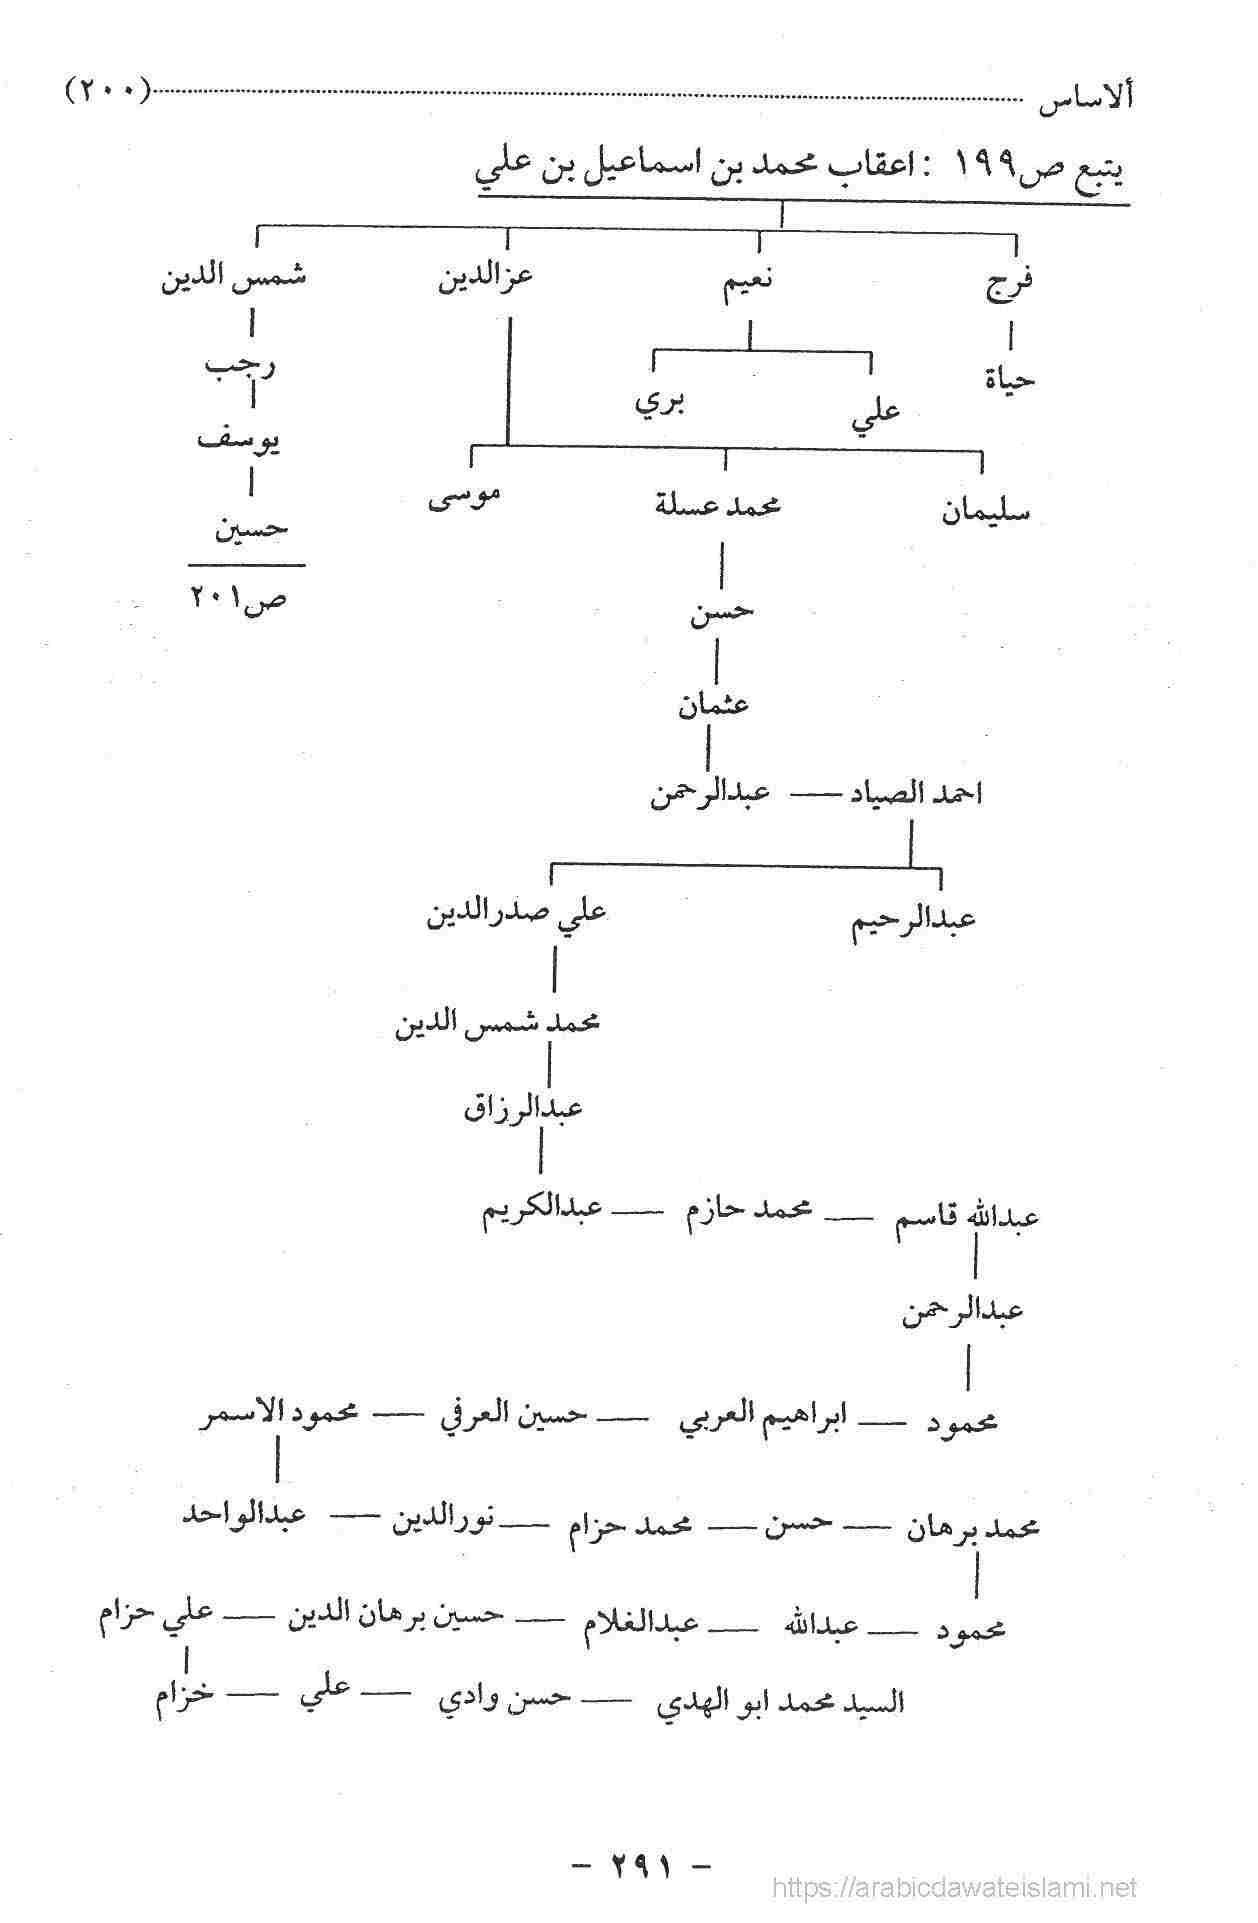 ألاساس ........ (٢٠٠)
يتبع ص١٩٩ : اعقاب محمد بن اسماعيل بن علي
فرج نعيم عزالدين شمس الدين
حياة علي بري رجب
يوسف
سليمان محمد عسلة موسى
حسين
حسن ص٢٠١
عثمان
احمد الصياد — عبدالرحمن
عبدالرحيم علي صدرالدين
محمد شمس الدين
عبدالرزاق
عبدالله قاسم — محمد حازم — عبدالكريم
عبدالرحمن
محمود — ابراهيم العربي — حسين العرفي — محمود الاسمر
محمد برهان — حسن — محمد حزام — نورالدين — عبدالواحد
محمود — عبدالله — عبدالغلام — حسين برهان الدين — علي حزام
السيد محمد ابو الهدي — حسن وادي — علي — خزام
- ٢٩١ -
https://arabicdawateislami.net